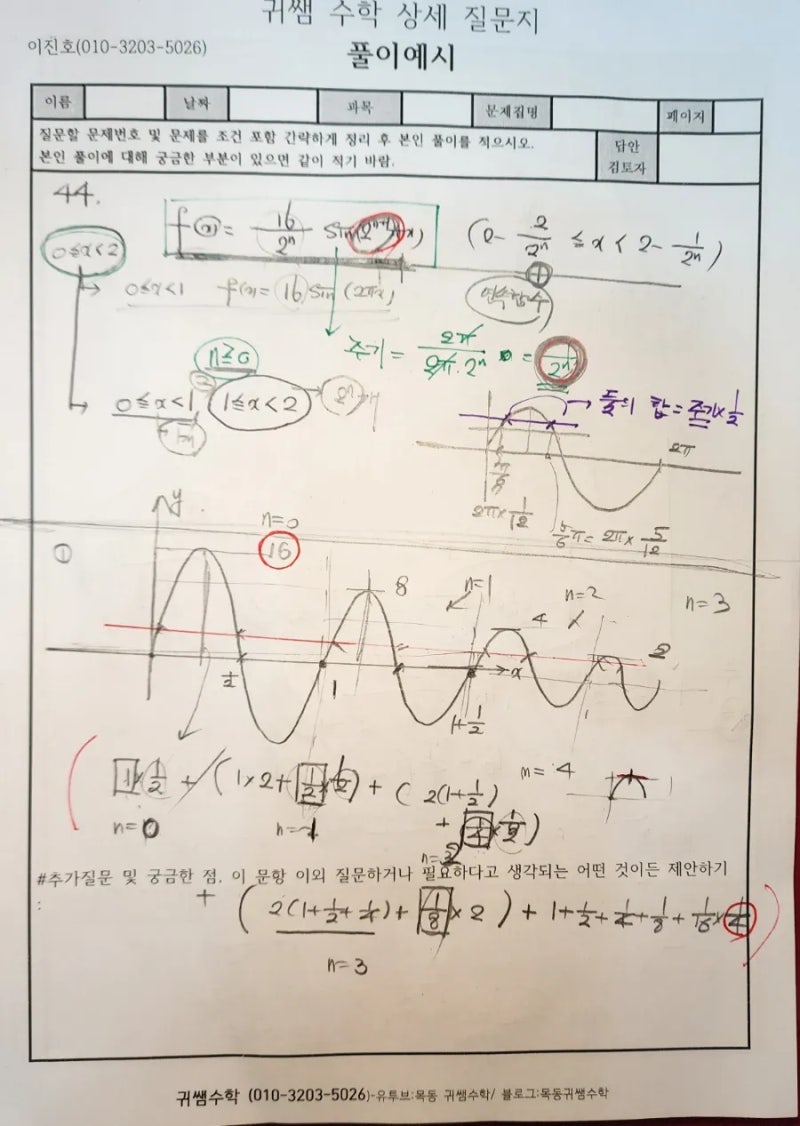 귀쌤 수학 상세 질문지
이진호(010-3203-5026)
풀이예시
이름 날짜 과목 문제집명 페이지
질문할 문제번호 및 문제를 조건 포함 간략하게 정리 후 본인 풀이를 적으시오.
본인 풀이에 대해 궁금한 부분이 있으면 같이 적기 바람.
답안
검토자
44.
f(x) = 16/2ⁿ sin(2ⁿ⁺¹πx) (2 - 2/2ⁿ ≦ x < 2 - 1/2ⁿ)
0≦x<2
0≤x<1 f(x) = 16 sin(2πx)
연속함수
n≧0
주기 = 2π/2π·2ⁿ = 1/2ⁿ
0≦x<1 1≦x<2
둘의 합 = 주기×1/2
2π
π/6
2π×1/12
5/6π = 2π×5/12
①
y
n=0
16
8
n=1
4
n=2
n=3
2
1/2
1
x
1+1/2
1×1/2 + (1×2+1/2×1/2) + (2(1+1/2)
+ 1/4×1/2)
n=0
n=1
n=2
n=4
#추가질문 및 궁금한 점. 이 문항 이외 질문하거나 필요하다고 생각되는 어떤 것이든 제안하기
:
+ (2(1+1/2+1/4)+1/8×2) + 1+1/2+1/4+1/8+1/16×1/4
n=3
귀쌤수학 (010-3203-5026)-유투브:목동 귀쌤수학/ 블로그:목동귀쌤수학